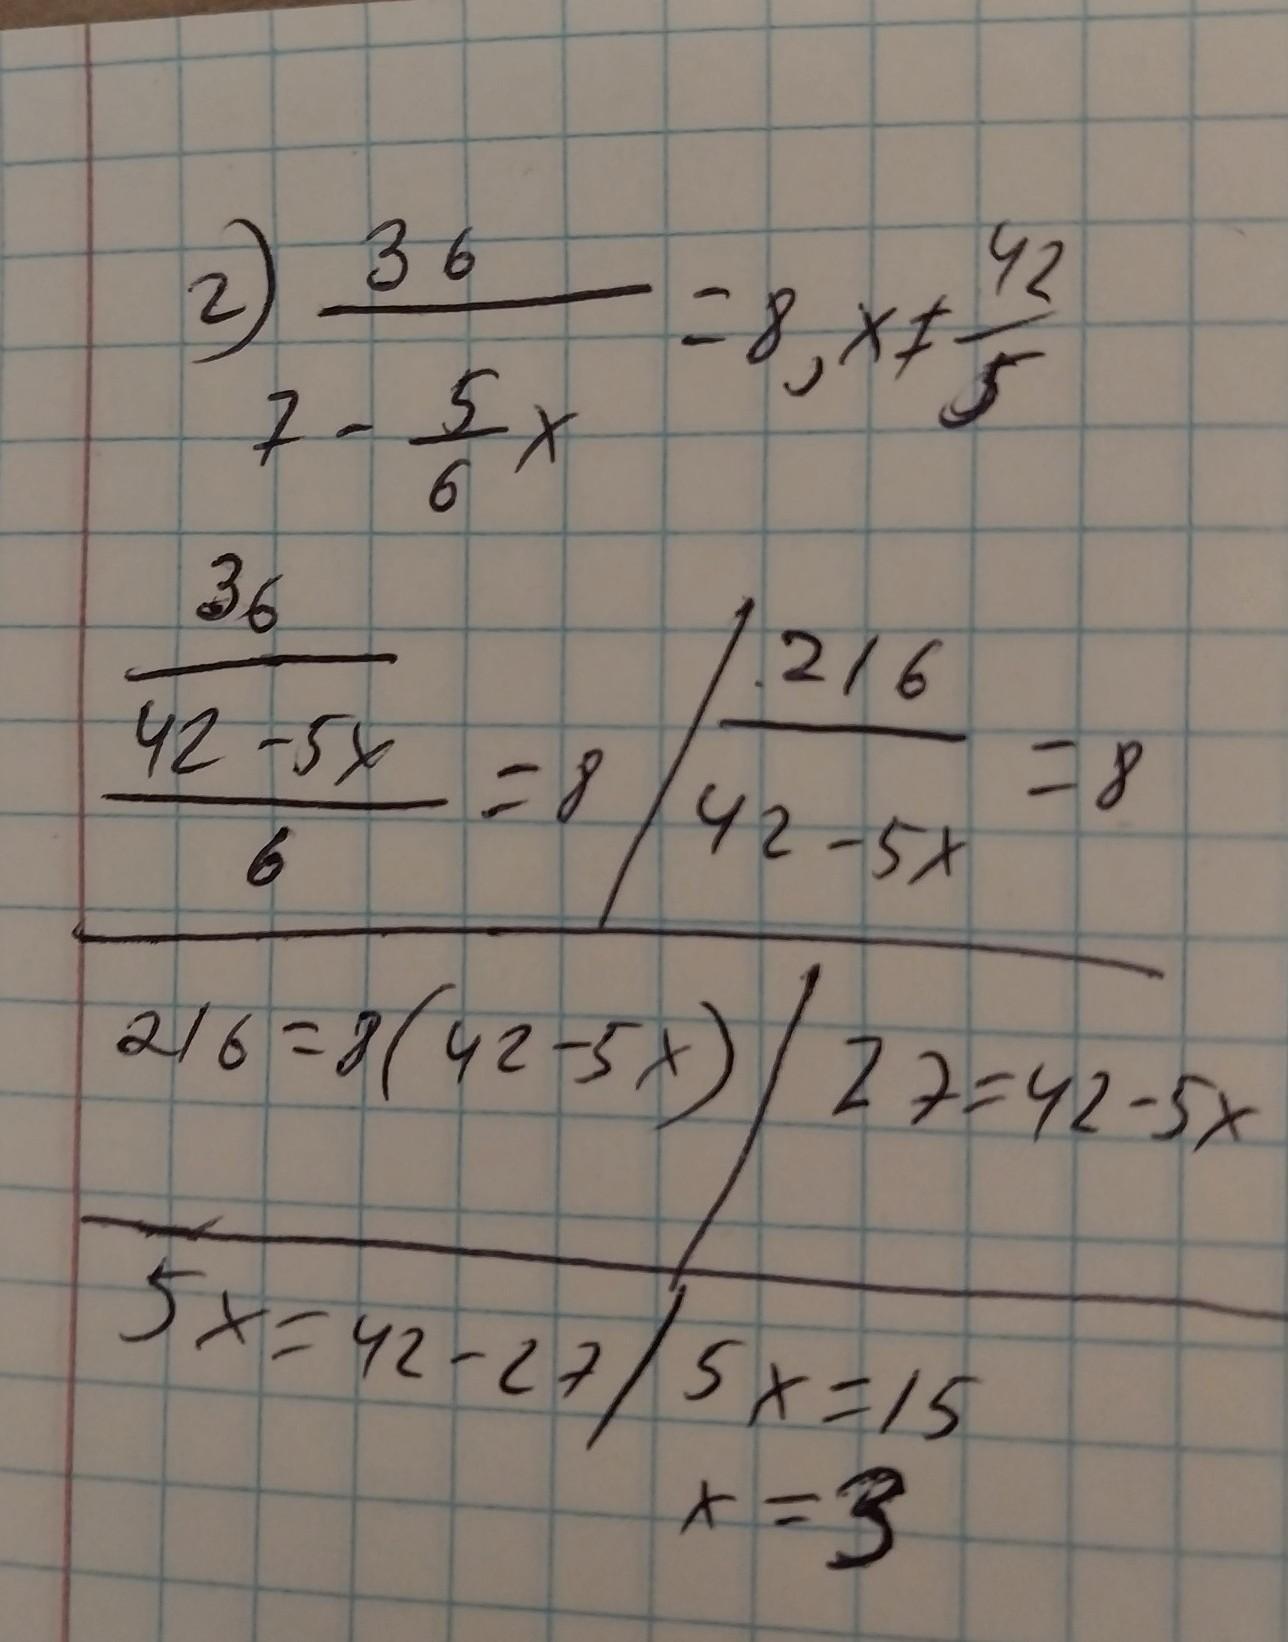 2) 36 / (7 - 5/6 x) = 8, x ≠ 42/5
36 / ((42 - 5x) / 6) = 8 / 216 / (42 - 5x) = 8
216 = 8(42 - 5x) / 27 = 42 - 5x
5x = 42 - 27 / 5x = 15
x = 3